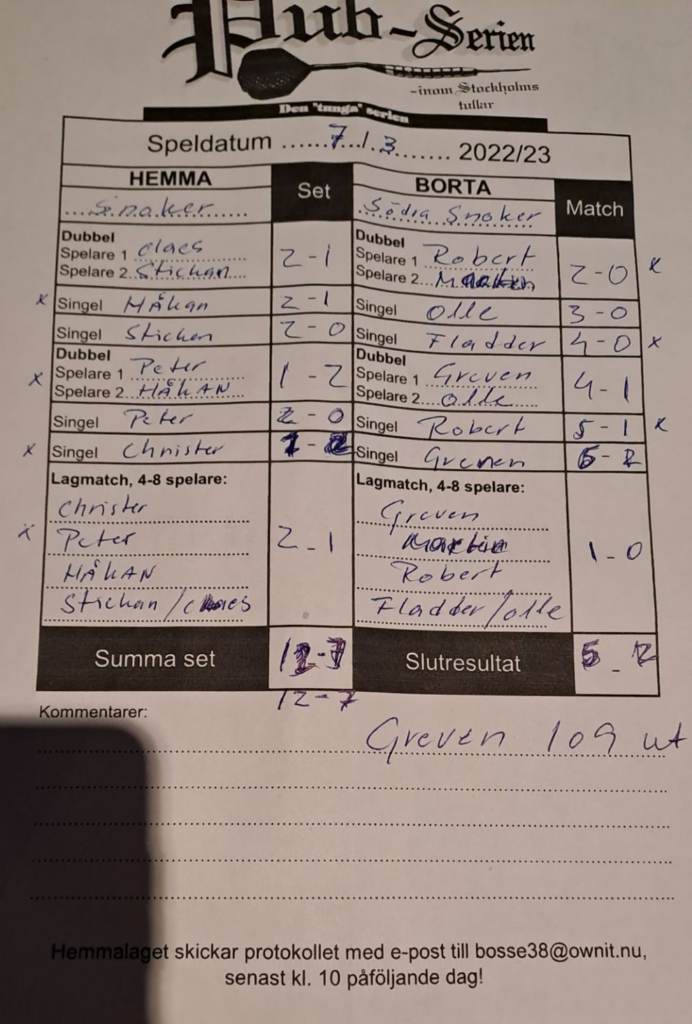 Pub-Serien
-inom Stockholms
tullar
Den "tunga" serien
Speldatum ......7../.3........ 2022/23
HEMMA Set BORTA Match
Snoker Södra Snoker
Dubbel Dubbel
Spelare 1 Claes 2-1 Spelare 1 Robert 2-0 x
Spelare 2 Stickan Spelare 2 Martin
x Singel Håkan 2-1 Singel Olle 3-0
Singel Stickan 2-0 Singel Fladder 4-0 x
Dubbel Dubbel
x Spelare 1 Peter 1-2 Spelare 1 Greven 4-1
Spelare 2 HÅKAN Spelare 2 Olle
Singel Peter 2-0 Singel Robert 5-1 x
x Singel Christer 1-2 Singel Greven 5-2
Lagmatch, 4-8 spelare: Lagmatch, 4-8 spelare:
Christer Greven
x Peter 2-1 Martin 1-0
HÅKAN Robert
Stickan/Claes Fladder/Olle
Summa set 12-7 Slutresultat 5-2
12-7
Kommentarer:
Greven 109 ut
Hemmalaget skickar protokollet med e-post till bosse38@ownit.nu,
senast kl. 10 påföljande dag!